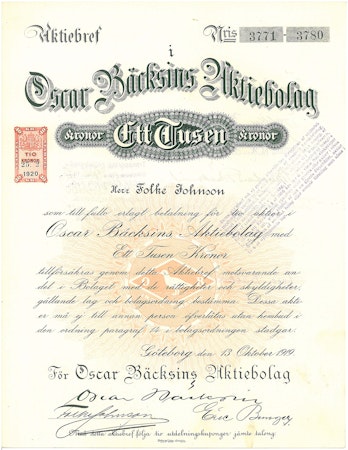 Aktiebref
Nris 3771 - 3780
i
Oscar Bäcksins Aktiebolag
Kronor Ett Tusen Kronor
TIO
KRONOR
1920
Herr Folke Johnson
som till fullo erlagt betalning för tio aktier i
Oscar Bäcksins Aktiebolag med
Ett Tusen Kronor
tillförsäkras genom detta Aktiebref motsvarande an-
del i Bolaget med de rättigheter och skyldigheter,
gällande lag och bolagsordning bestämma. Dessa aktier
äro må ej till annan person öfverlåtas utan hembud i
den ordning paragraf 14 i bolagsordningen stadgar.
Göteborg den 13 Oktober 1919.
För Oscar Bäcksins Aktiebolag
Oscar Bäcksin
Folke Johnson
Med detta aktiebref följa tio utdelningskuponger jämte talong.